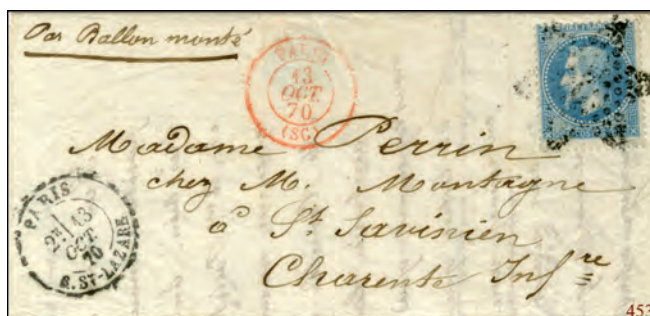 Par Ballon monté
PARIS
13
OCT
70
(SC)
Madame Perrin
chez M. Montagne
à St Savinien
Charente Infre
PARIS
13
OCT
70
R. ST-LAZARE
453